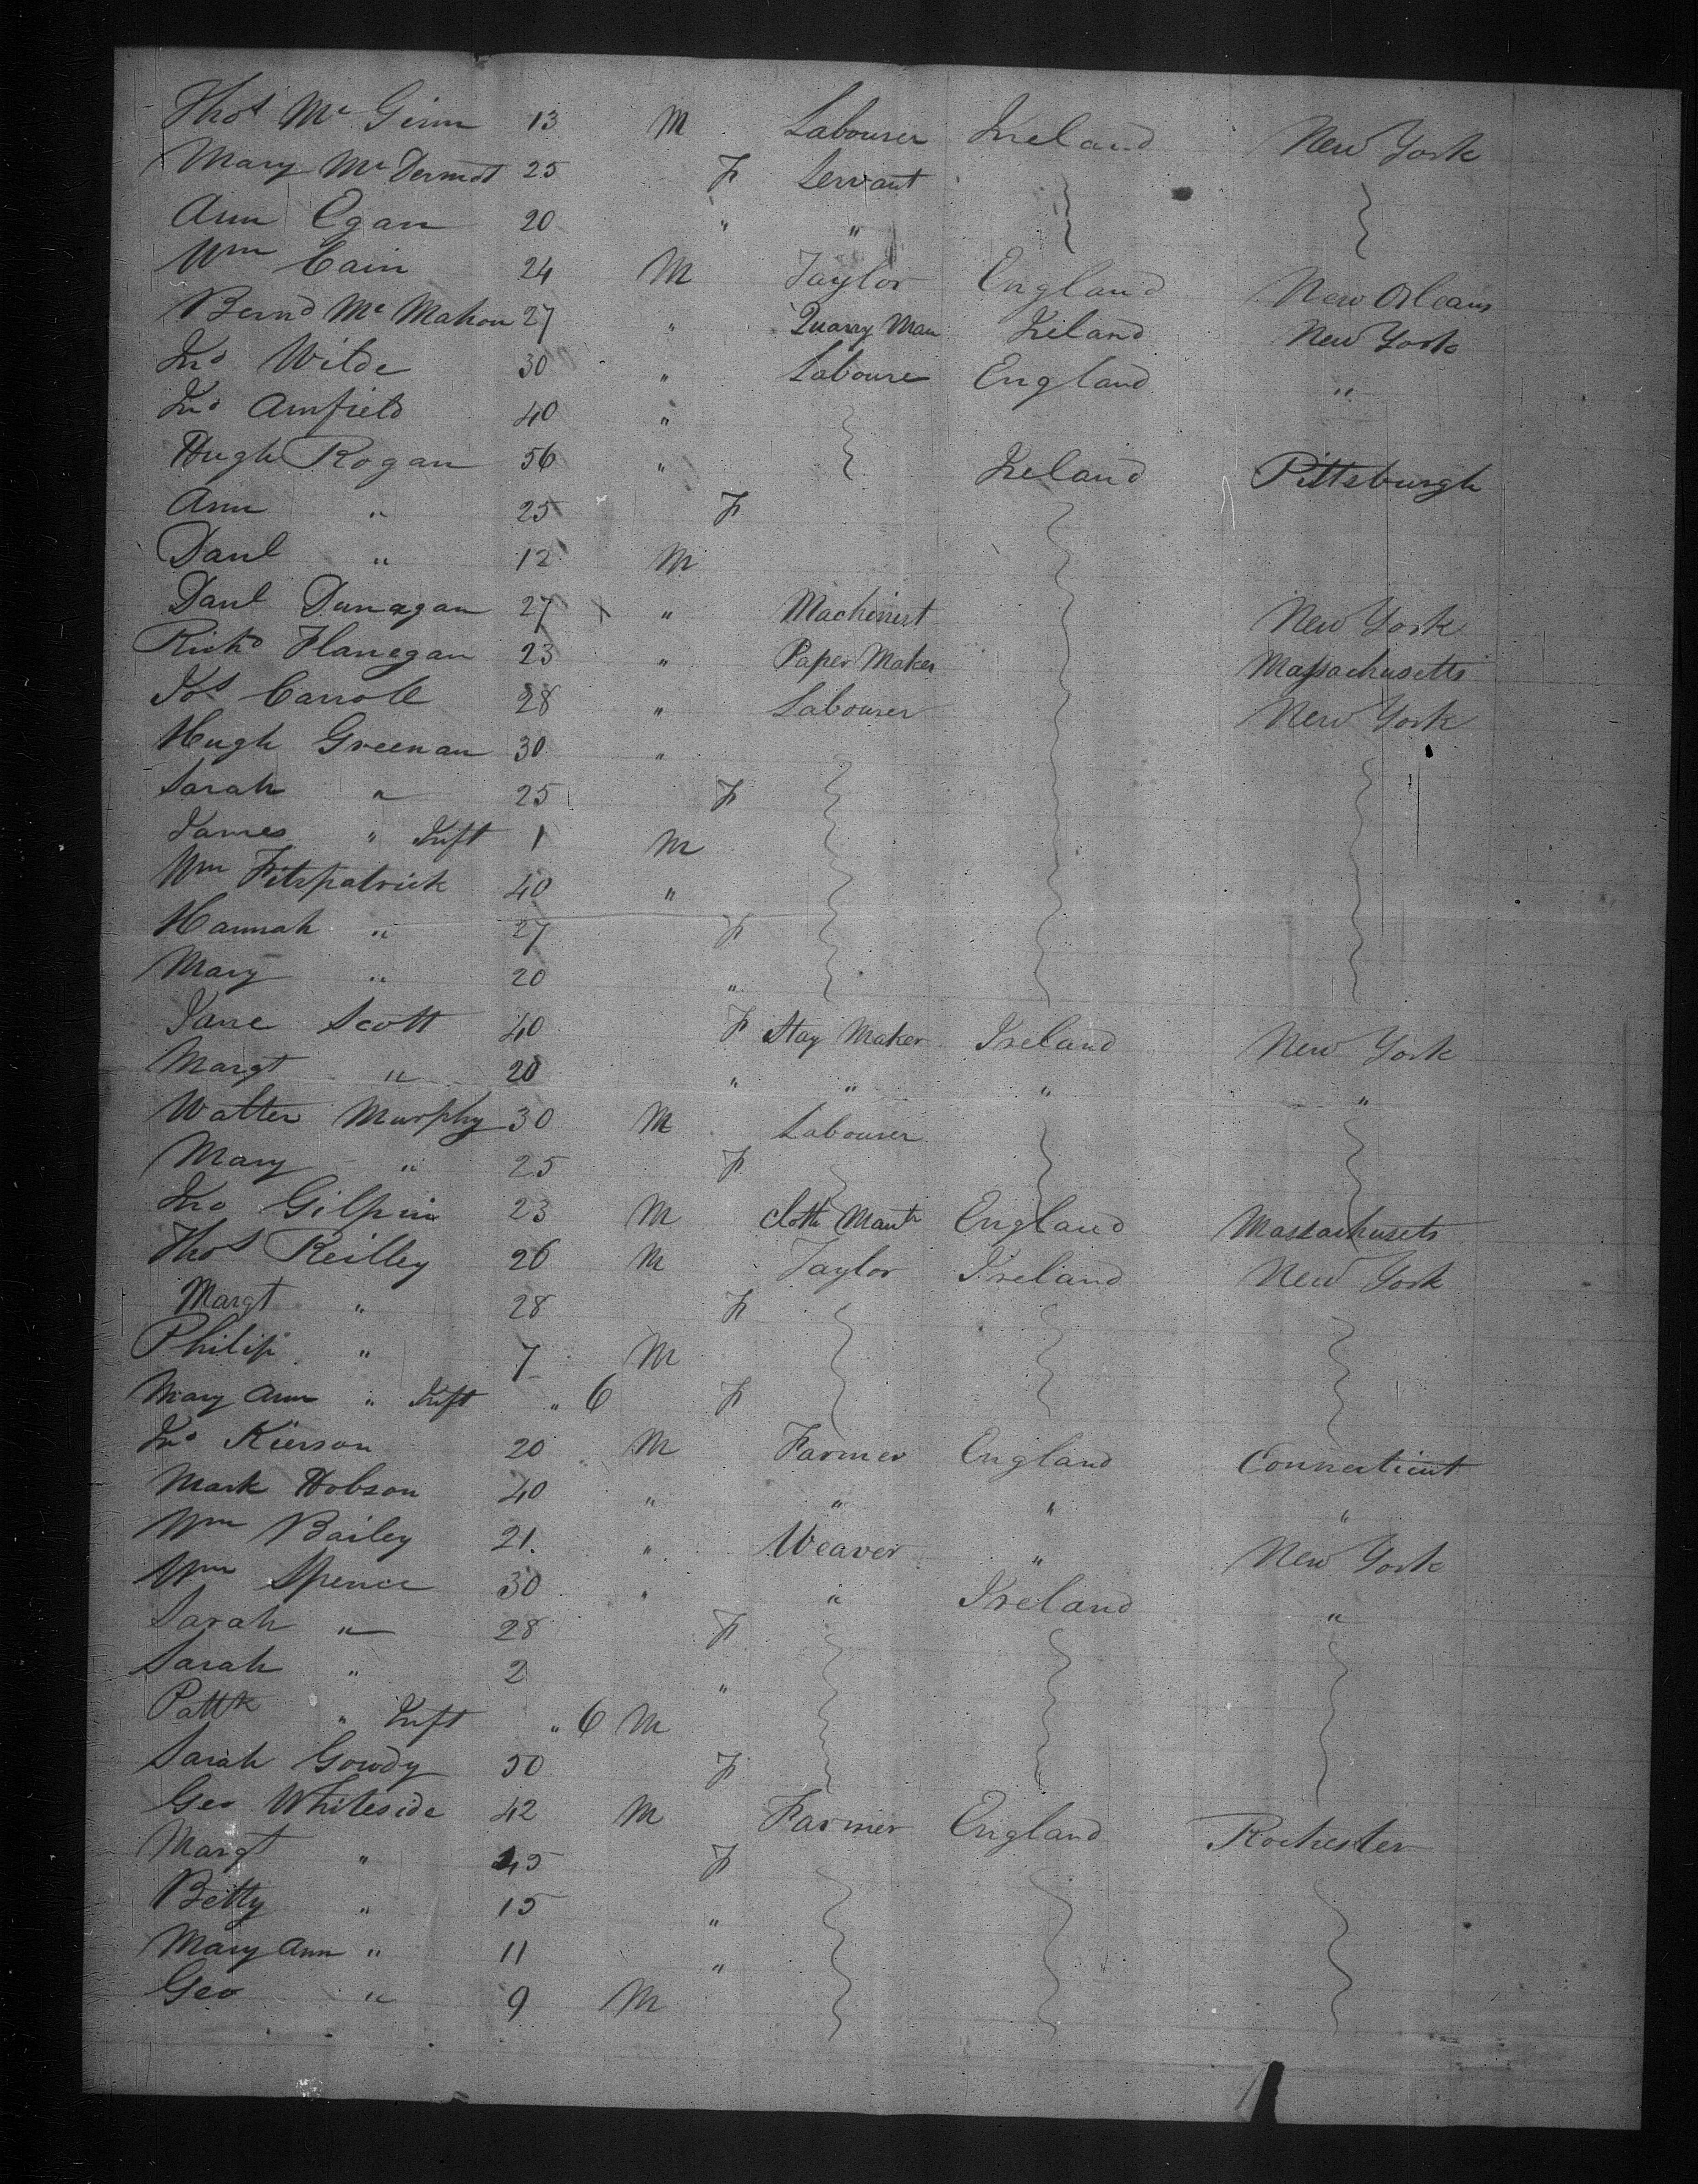 Thos Mc Ginn 13 M Labourer Ireland New York
Mary Mc Dermot 25 F Servant
Ann Egan 20 " "
Wm Cain 24 M Taylor England New Orleans
Bernd Mc Mahon 27 " Quarry Man Ireland New York
Jno Wilde 30 " Laboure England "
Jno Armfield 40 "
Hugh Rogan 56 " Ireland Pittsburgh
Ann " 25 F
Danl " 12 M
Danl Dunagan 27 x " Machinist New York
Richd Flanegan 23 " Paper Maker Massachusetts
Jos Carroll 28 " Labourer New York
Hugh Greenan 30 "
Sarah " 25 F
James " Inft 1 M
Wm Fitzpatrick 40 "
Hannah " 27 F
Mary " 20 "
Jane Scott 40 F Stay Maker Ireland New York
Margt " 20 " " " "
Walter Murphy 30 M Labourer
Mary " 25 F
Jno Gilpin 23 M Cloth Manfr England Massachusets
Thos Reilley 26 M Taylor Ireland New York
Margt " 28 F
Philip " 7 M
Mary Ann " Inft " 6 F
Jno Kierson 20 M Farmer England Connecticut
Mark Hobson 40 " " " "
Wm Bailey 21. " Weaver " New York
Wm Spence 30 " " Ireland "
Sarah " 28 F
Sarah " 2 "
Pattk " Inft " 6 M
Sarah Gowdy 50 F
Geo Whiteside 42 M Farmer England Rochester
Margt " 45 F
Betty " 15 "
Mary Ann " 11 "
Geo " 9 M